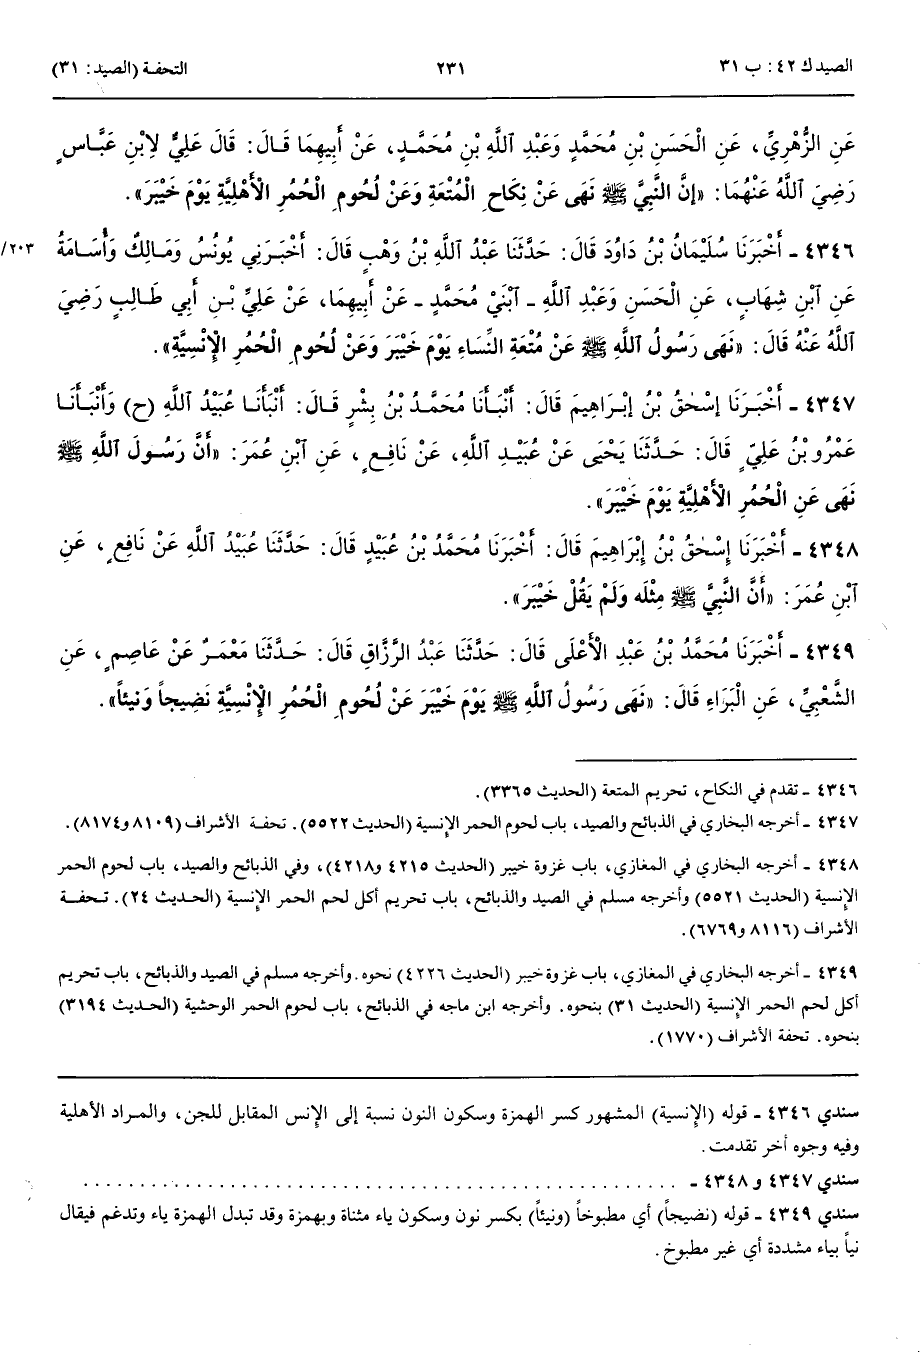 الصيد ك ٤٢: ب ٣١ ٢٣١ التحفة (الصيد: ٣١)
عَنِ الزُّهْرِيِّ، عَنِ الْحَسَنِ بْنِ مُحَمَّدٍ وَعَبْدِ ٱللَّهِ بْنِ مُحَمَّدٍ، عَنْ أَبِيهِمَا قَالَ: قَالَ عَلِيٌّ لِابْنِ عَبَّاسٍ
رَضِيَ ٱللَّهُ عَنْهُمَا: «إِنَّ النَّبِيَّ ﷺ نَهَى عَنْ نِكَاحِ الْمُتْعَةِ وَعَنْ لُحُومِ الْحُمُرِ الْأَهْلِيَّةِ يَوْمَ خَيْبَرَ».
٤٣٤٦ - أَخْبَرَنَا سُلَيْمَانُ بْنُ دَاوُدَ قَالَ: حَدَّثَنَا عَبْدُ ٱللَّهِ بْنُ وَهْبٍ قَالَ: أَخْبَرَنِي يُونُسُ وَمَالِكٌ وَأُسَامَةُ ٢٠٣/
عَنِ ٱبْنِ شِهَابٍ، عَنِ الْحَسَنِ وَعَبْدِ ٱللَّهِ - ٱبْنَيْ مُحَمَّدٍ - عَنْ أَبِيهِمَا، عَنْ عَلِيِّ بْنِ أَبِي طَالِبٍ رَضِيَ
ٱللَّهُ عَنْهُ قَالَ: «نَهَى رَسُولُ ٱللَّهِ ﷺ عَنْ مُتْعَةِ النِّسَاءِ يَوْمَ خَيْبَرَ وَعَنْ لُحُومِ الْحُمُرِ الْإِنْسِيَّةِ».
٤٣٤٧ - أَخْبَرَنَا إِسْحٰقُ بْنُ إِبْرَاهِيمَ قَالَ: أَنْبَأَنَا مُحَمَّدُ بْنُ بِشْرٍ قَالَ: أَنْبَأَنَا عُبَيْدُ ٱللَّهِ (ح) وَأَنْبَأَنَا
عَمْرُو بْنُ عَلِيٍّ قَالَ: حَدَّثَنَا يَحْيَى عَنْ عُبَيْدِ ٱللَّهِ، عَنْ نَافِعٍ، عَنِ ٱبْنِ عُمَرَ: «أَنَّ رَسُولَ ٱللَّهِ ﷺ
نَهَى عَنِ الْحُمُرِ الْأَهْلِيَّةِ يَوْمَ خَيْبَرَ».
٤٣٤٨ - أَخْبَرَنَا إِسْحٰقُ بْنُ إِبْرَاهِيمَ قَالَ: أَخْبَرَنَا مُحَمَّدُ بْنُ عُبَيْدٍ قَالَ: حَدَّثَنَا عُبَيْدُ ٱللَّهِ عَنْ نَافِعٍ، عَنِ
ٱبْنِ عُمَرَ: «أَنَّ النَّبِيَّ ﷺ مِثْلَه وَلَمْ يَقُلْ خَيْبَرَ».
٤٣٤٩ - أَخْبَرَنَا مُحَمَّدُ بْنُ عَبْدِ الْأَعْلَى قَالَ: حَدَّثَنَا عَبْدُ الرَّزَّاقِ قَالَ: حَدَّثَنَا مَعْمَرٌ عَنْ عَاصِمٍ، عَنِ
الشَّعْبِيِّ، عَنِ الْبَرَاءِ قَالَ: «نَهَى رَسُولُ ٱللَّهِ ﷺ يَوْمَ خَيْبَرَ عَنْ لُحُومِ الْحُمُرِ الْإِنْسِيَّةِ نَضِيجاً وَنِيئاً».
٤٣٤٦ - تقدم في النكاح، تحريم المتعة (الحديث ٣٣٦٥).
٤٣٤٧ - أخرجه البخاري في الذبائح والصيد، باب لحوم الحمر الإنسية (الحديث ٥٥٢٢). تحفة الأشراف (٨١٠٩ و٨١٧٤).
٤٣٤٨ - أخرجه البخاري في المغازي، باب غزوة خيبر (الحديث ٤٢١٥ و٤٢١٨)، وفي الذبائح والصيد، باب لحوم الحمر
الإنسية (الحديث ٥٥٢١) وأخرجه مسلم في الصيد والذبائح، باب تحريم أكل لحم الحمر الإنسية (الحديث ٢٤). تحفة
الأشراف (٨١١٦ و٦٧٦٩).
٤٣٤٩ - أخرجه البخاري في المغازي، باب غزوة خيبر (الحديث ٤٢٢٦) نحوه. وأخرجه مسلم في الصيد والذبائح، باب تحريم
أكل لحم الحمر الإنسية (الحديث ٣١) بنحوه. وأخرجه ابن ماجه في الذبائح، باب لحوم الحمر الوحشية (الحديث ٣١٩٤)
بنحوه. تحفة الأشراف (١٧٧٠).
سندي ٤٣٤٦ - قوله (الإنسية) المشهور كسر الهمزة وسكون النون نسبة إلى الإنس المقابل للجن، والمراد الأهلية
وفيه وجوه أخر تقدمت.
سندي ٤٣٤٧ و ٤٣٤٨ - . . . . . . . . . . . . . . . . . . . . . . . . . . . . . . . . . . . . . . . . . . . . . . . . . .
سندي ٤٣٤٩ - قوله (نضيجاً) أي مطبوخاً (ونيئاً) بكسر نون وسكون ياء مثناة وبهمزة وقد تبدل الهمزة ياء وتدغم فيقال
نياً بياء مشددة أي غير مطبوخ.